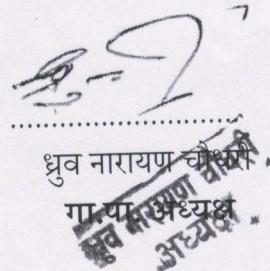 ..............................
ध्रुव नारायण चौधरी
गा.पा. अध्यक्ष
ध्रुव नारायण चौधरी
अध्यक्ष